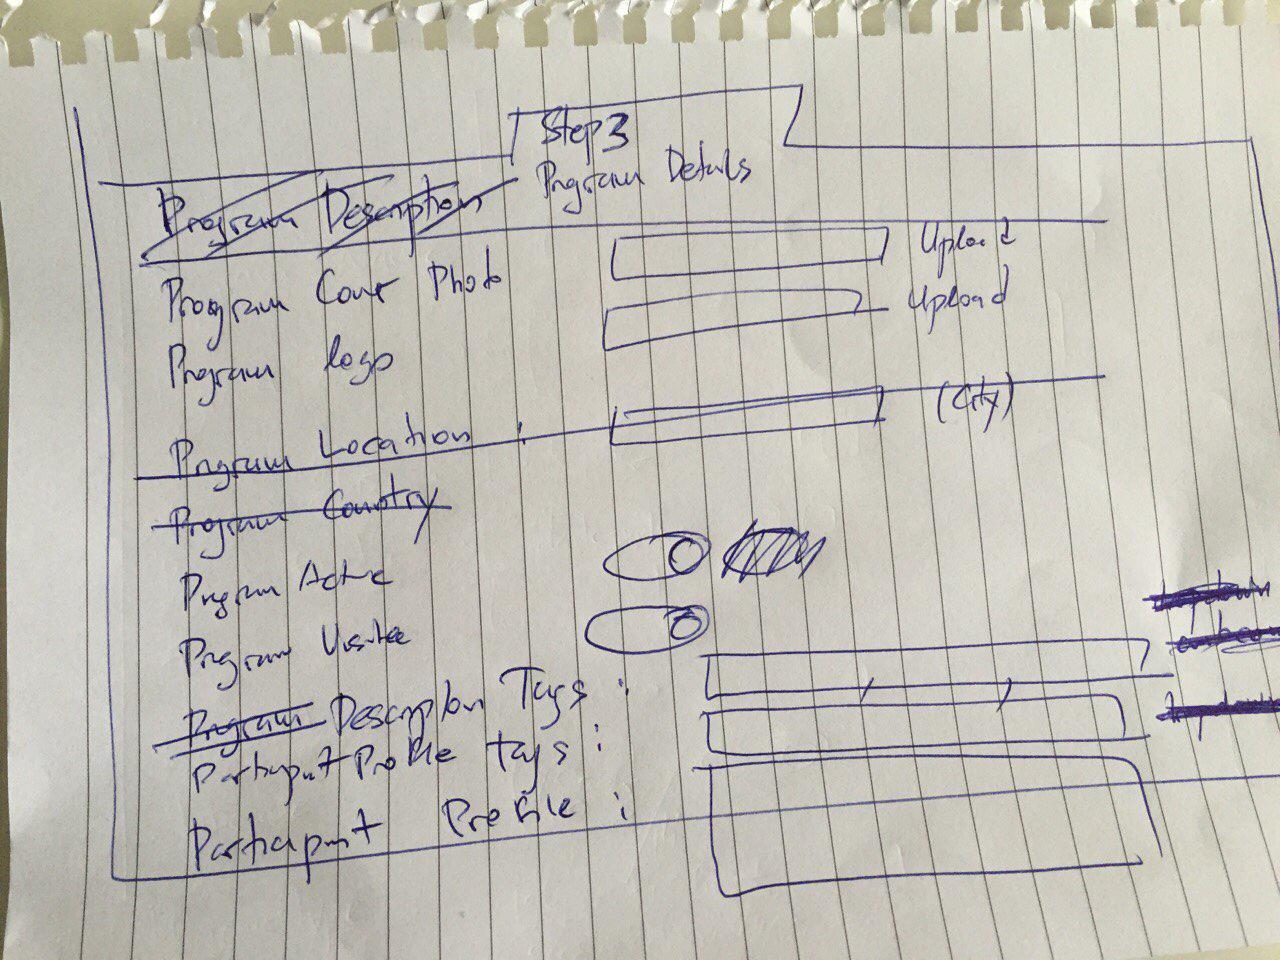 Step 3
Program Details
Program Description
Program Cover Photo Upload
Program logo Upload
Program Location : (City)
Program Country
Program Active
Program Visible
Program Description Tags :
Participant Profile tags :
Participant Profile :